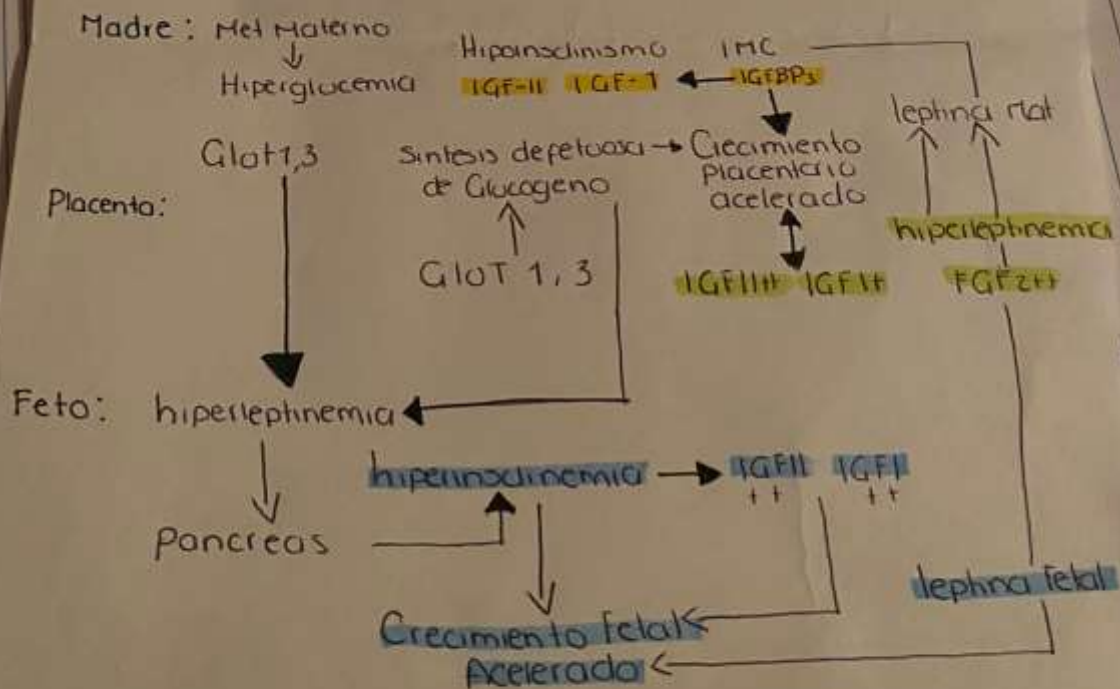 Madre: Met Materno
Hiperglucemia
Hiperinsulinismo
IMC
IGF-II IGF-1
IGFBPs
leptina Mat
Placenta:
Glut 1,3
Sintesis defetuosa
de Glucogeno
Crecimiento
Placentario
acelerado
GluT 1, 3
IGFII++ IGFI+
hiperleptinemia
FGF2++
Feto: hiperleptinemia
Pancreas
hiperinsulinemia
IGFII IGFI
++ ++
leptina Fetal
Crecimiento Fetal
Acelerado